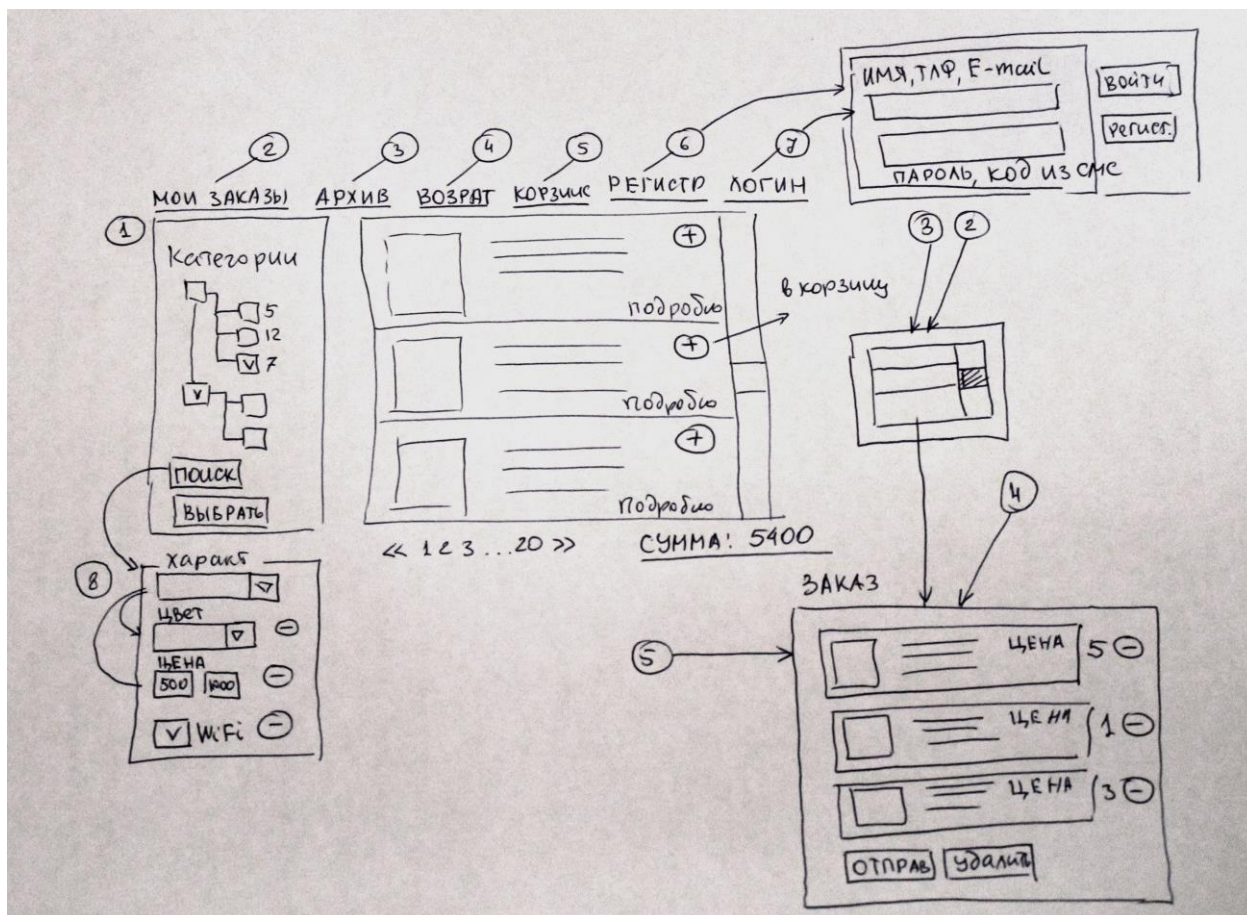 ИМЯ, ТЛФ, E-mail
ВОЙТИ
РЕГИСТ.
ПАРОЛЬ, КОД ИЗ СМС
2 3 4 5 6 7
МОИ ЗАКАЗЫ АРХИВ ВОЗРАТ КОРЗИНС РЕГИСТР ЛОГИН
1
Категории
5
12
7
ПОИСК
ВЫБРАТЬ
+
подробно
+
в корзину
подробно
+
подробно
<< 1 2 3 ... 20 >>
СУММА: 5400
3 2
4
8
характ
ЦВЕТ
-
ЦЕНА
500 1000 -
v WiFi -
5
ЗАКАЗ
ЦЕНА 5 -
ЦЕНА 1 -
ЦЕНА 3 -
ОТПРАВ удалить